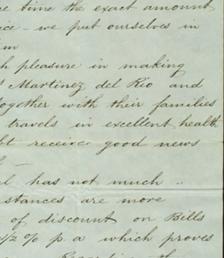 time the exact amount
we put ourselves in
pleasure in making
Martinez del Rio and
together with their families
travels in excellent health
receive good news
has not much
stances are more
of discount on Bills
1/2 % p. a which proves